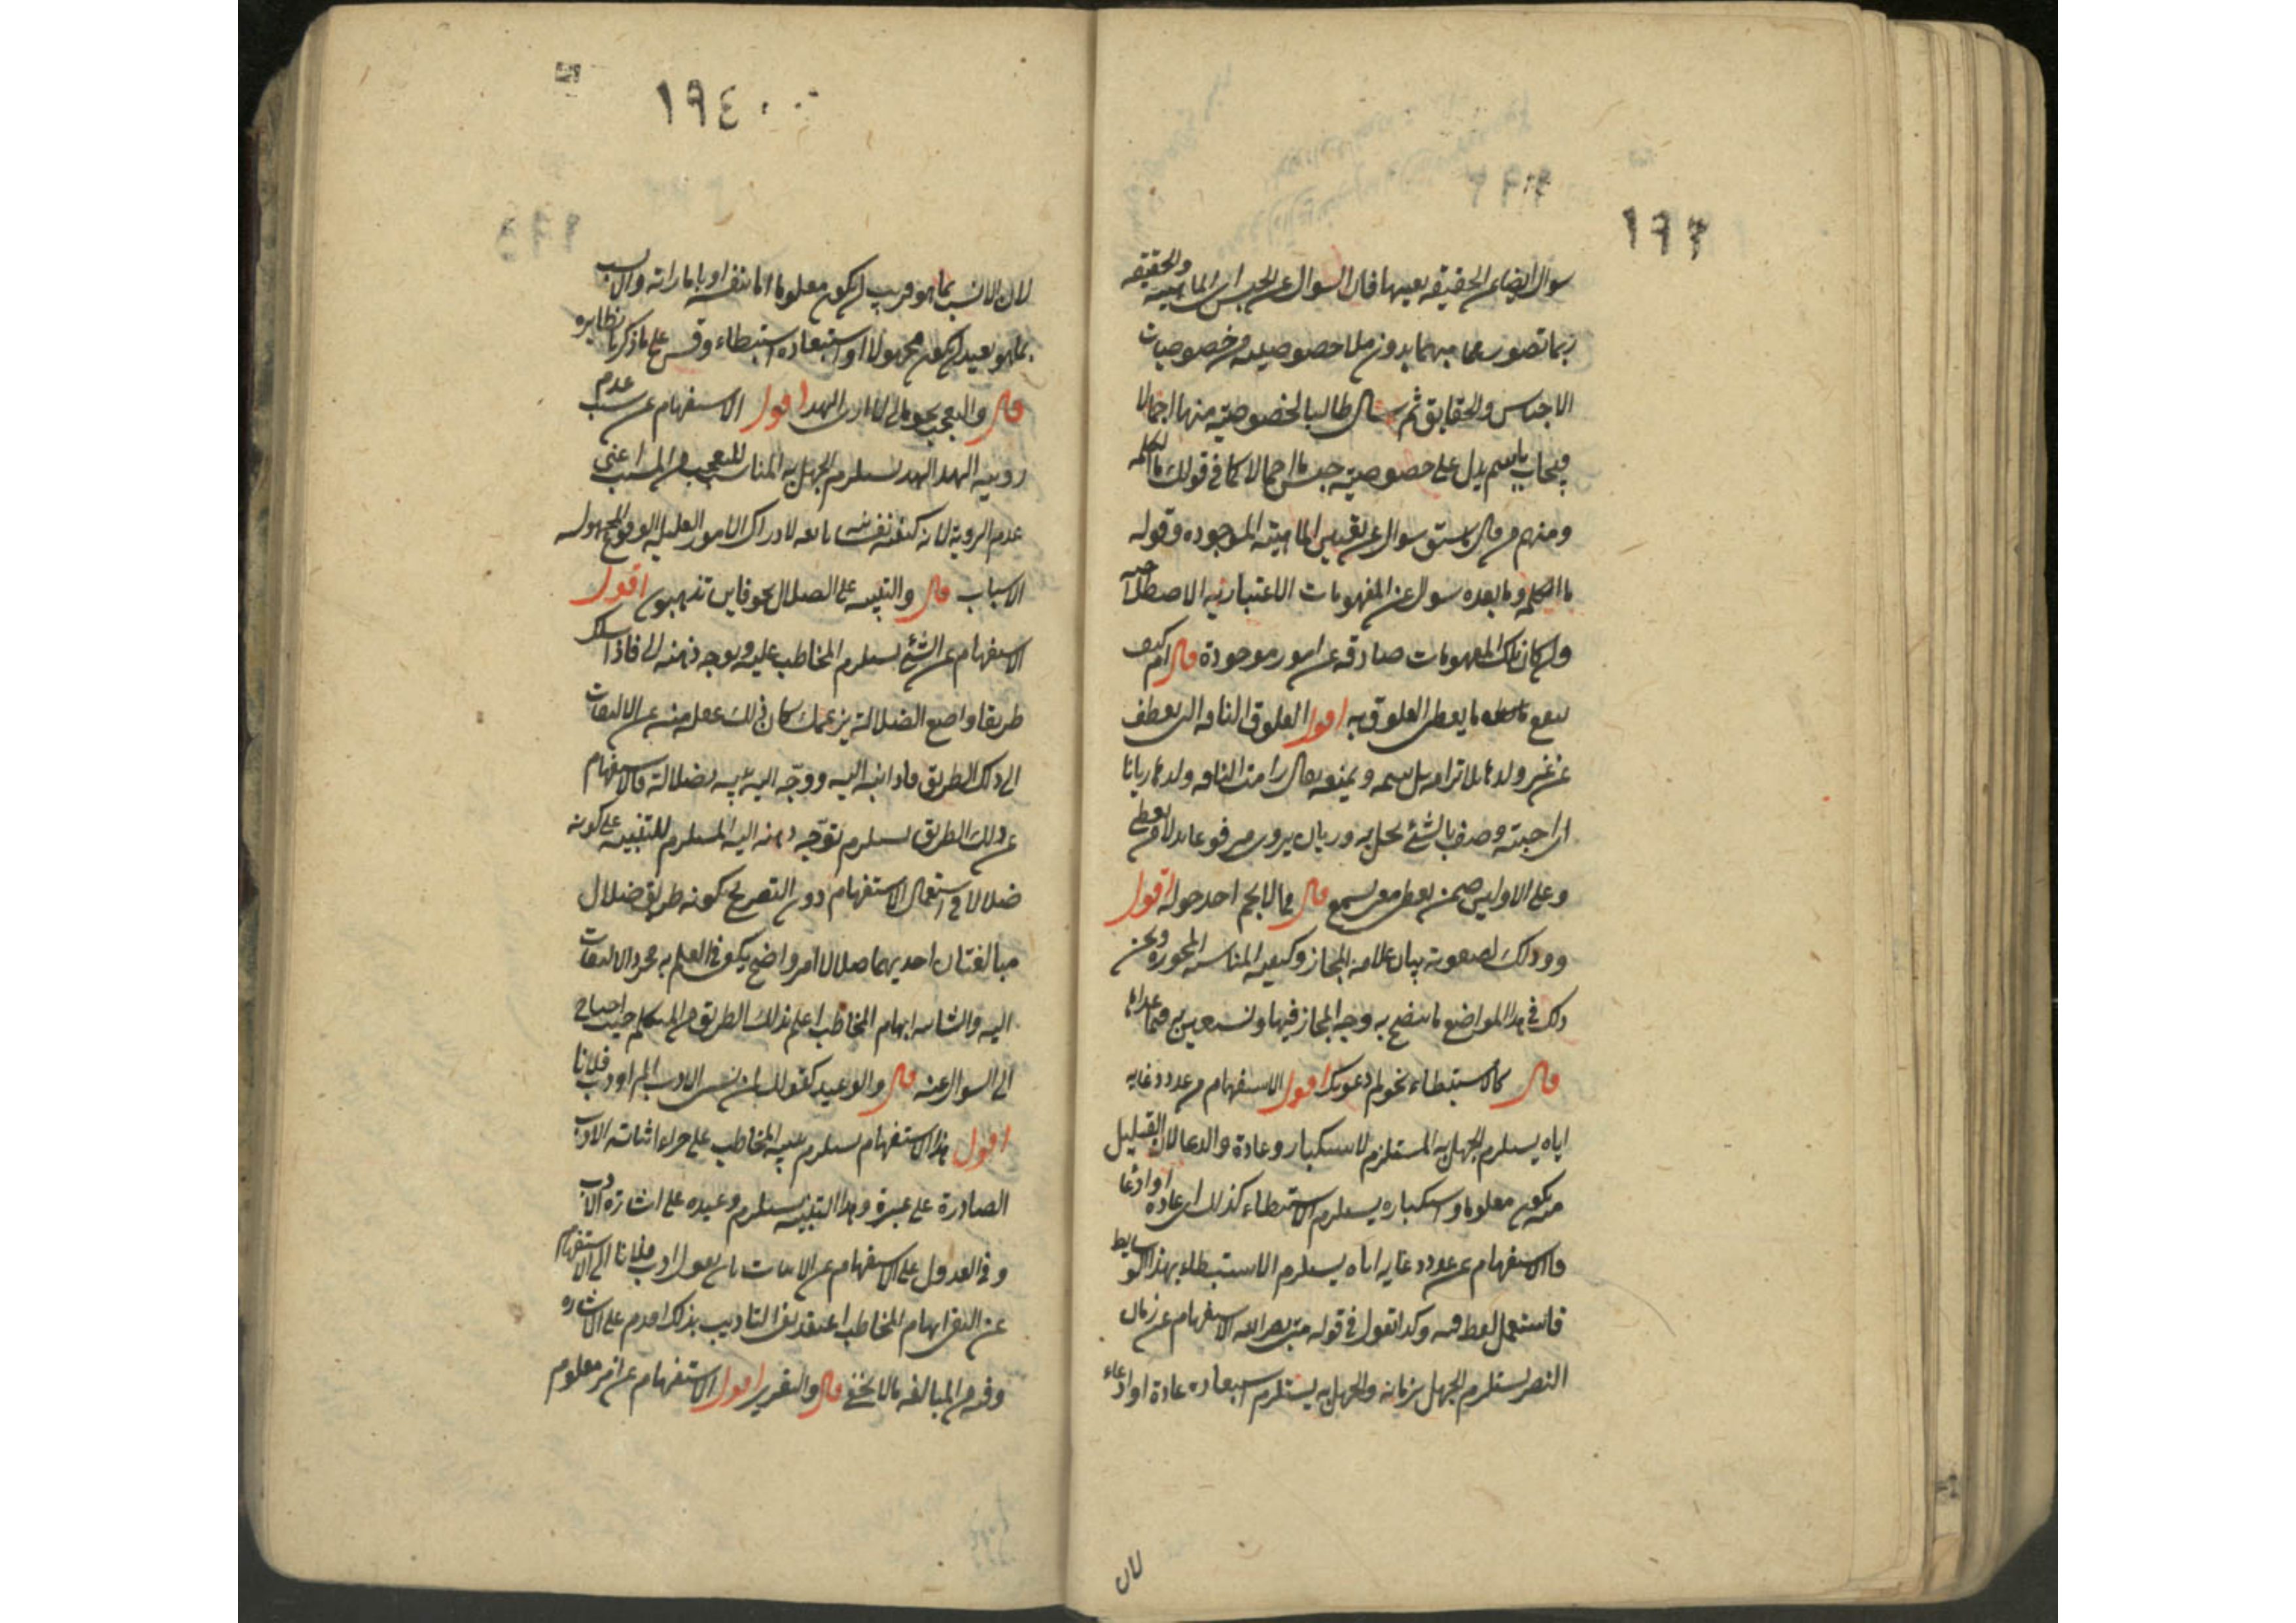 ١٩٣
سوال ايضا عن الحقيقه بعينها فان السوال عن الجنس اى الماهيته والحقيقه
ربما تصور بدون خصوصيات
الاجناس والحقايق ثم سال طالبا لخصوصيته منها اجمالا
فيجاب باسم يدل على خصوصيته جنس ما اجمالا كما فى قولك ما الكلمه
ومنهم من قال ما سبق سوال عن تفسير الماهيته الموجوده وقوله
ما الكلمه وما بعده سوال عن المفهومات الاعتباريه الاصطلاحيه
وان كان تلك المفهومات صادقه عن امور موجودة قال ام كيف
ينفع ما يعطى العلوق به اقول العلوق الناقه التى تعطف
على غير ولدها فلا ترامه بل تشمه و تمنعه يقال رامت الناقه ولدها ريمانا
اى احبته وصف بالشئ يروى مرفوعا بدلا من
وعلى الاولين ضمن يعطى معنى يسمح قال مما لا يحم احد حوله اقول
وذلك لصعوبه بيان علامه المجاز وكيفيه المناسبه المجوزه ونحن
ذلك فى هذا المواضع ما يتضح به وجه المجاز فيها وتستعين به فيما عداها
قال كالاستبطاء نحو كم دعوتك اقول الاستفهام من عدد دعايه
اياه يستلزم الجهل به المستلزم لاستكباره عادة وادعا لان القليل
منه يكون معلوما واستكباره يستلزم الاستبطاء كذلك اى عادة او ادعا
فالاستفهام عن عدد دعايه اياه يستلزم الاستبطاء بهذا الوسايط
فاستعمل لفظه فيه وكذا تقول فى قوله متى نصر الله الاستفهام عن زمان
النصر يستلزم الجهل بزمانه والجهل به يستلزم استبعاده عادة او ادعاء
لان
١٩٤
لان الانسب بما هو قريب ان يكون معلوما اما بنفسه او باماراته والانسب
بما هو بعيد ان يكون مجهولا او استبعاده استبطاء وقس على ما ذكرنا نظايره
قال والتعجب نحو مالى لا ارى الهدهد اقول الاستفهام عن سبب عدم
رويته الهدهد يستلزم الجهل به المناسب للتعجب من المسبب اعنى
عدم الروية لانه كيفيه نفسانيه تابعه لادراك الامور القليله الوقوع المجهوله
الاسباب قال والتنبيه على الضلال نحو فاين تذهبون اقول
الاستفهام عن الشئ يستلزم المخاطب عليه وتوجه ذهنه اليه فاذا سلك
طريقا واضح الضلالة بزعمك كان ذلك غفله منه عن الالتفات
الى ذلك الطريق فاذا نبه اليه ووجه اليه تنبه لضلالته فالاستفهام
عن ذلك الطريق يستلزم توجه ذهنه اليه المستلزم للتنبيه على كونه
ضلالا وفى استعمال الاستفهام دون التصريح بكونه طريق ضلال
مبالغتان احديهما ان ضلاله امر واضح يكفى فى العلم به مجرد الالتفات
اليه والثانيه ايهام المخاطب اعلم بذلك الطريق من المتكلم حيث احتاج
الى السوال عنه قال والوعيد كقولك لمن يسئ الادب الم اودب فلانا
اقول هذا الاستفهام يستلزم تنبيه المخاطب على جزاء اساته الادب
الصادرة عن غيره وهذا التنبيه يستلزم وعيده على اساته الادب
وفى العدول عن الاستفهام عن الاثبات بان يقول ادبت فلانا الى الاستفهام
عن النفى ايهام المخاطب اعتقد نفى التاديب بذلك اقدم على الاساره
وفيه من المبالغه ما لا يخفى قال والتقرير اقول الاستفهام عن امر معلوم